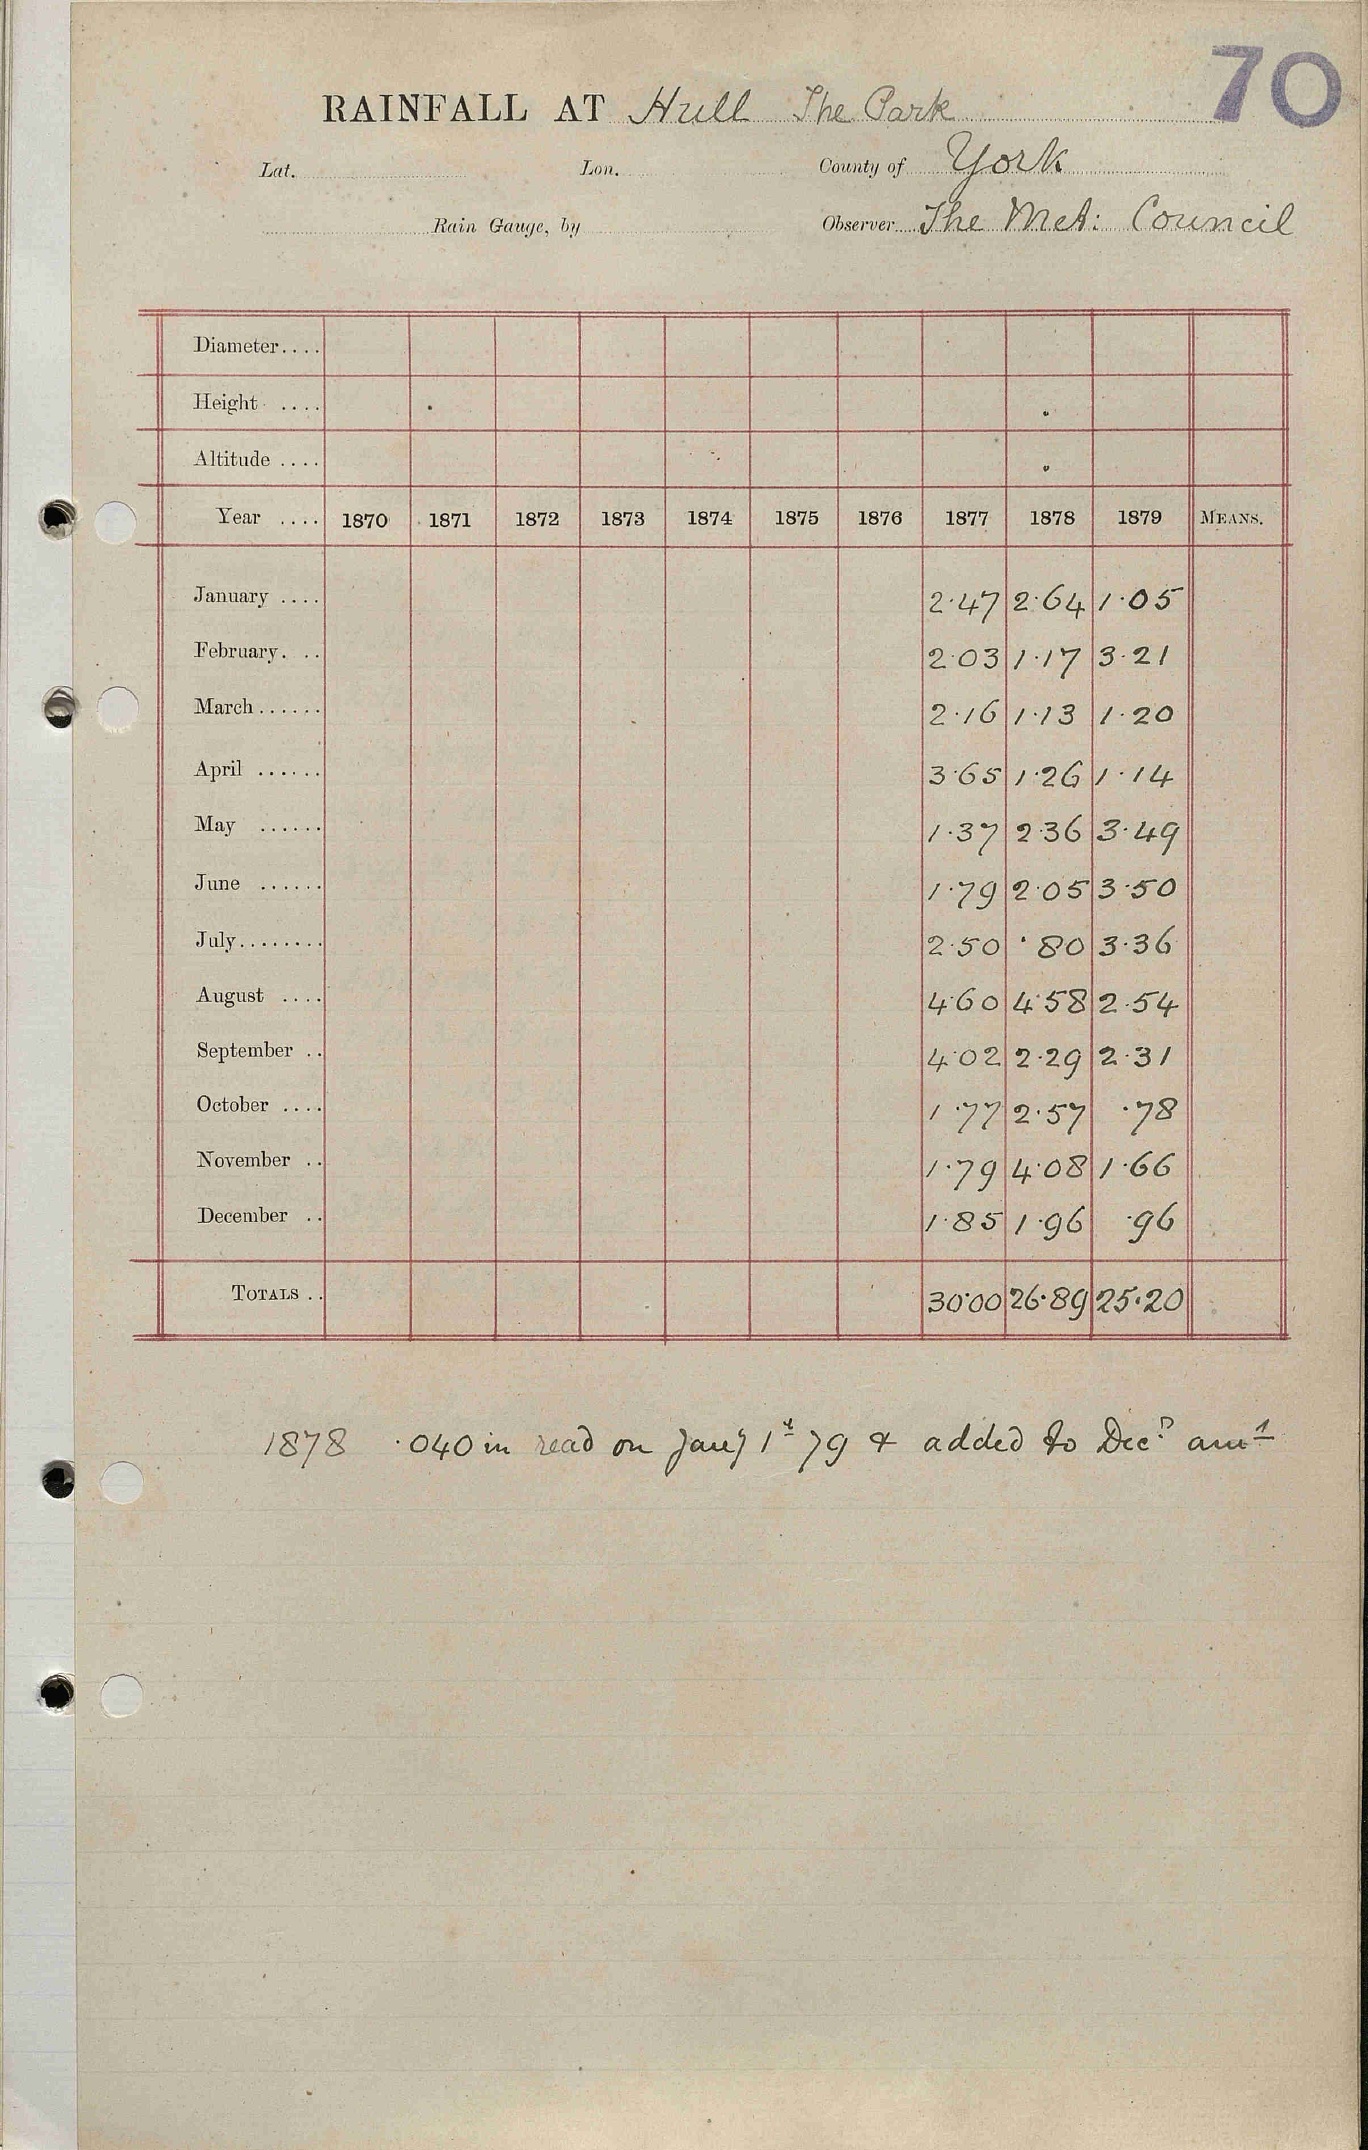 70
RAINFALL AT Hull The Park
Lat. Lon. County of York
Rain Gauge, by Observer The Met: Council
Diameter....
Height ....
Altitude ....
Year .... 1870 1871 1872 1873 1874 1875 1876 1877 1878 1879 MEANS.
January .... 2.47 2.64 1.05
February. .. 2.03 1.17 3.21
March ...... 2.16 1.13 1.20
April ...... 3.65 1.26 1.14
May ...... 1.37 2.36 3.49
June ...... 1.79 2.05 3.50
July........ 2.50 .80 3.36
August .... 4.60 4.58 2.54
September .. 4.02 2.29 2.31
October .... 1.77 2.57 .78
November .. 1.79 4.08 1.66
December .. 1.85 1.96 .96
TOTALS .. 30.00 26.89 25.20
1878 .040 in read on Jany 1st 79 & added to Decr amt